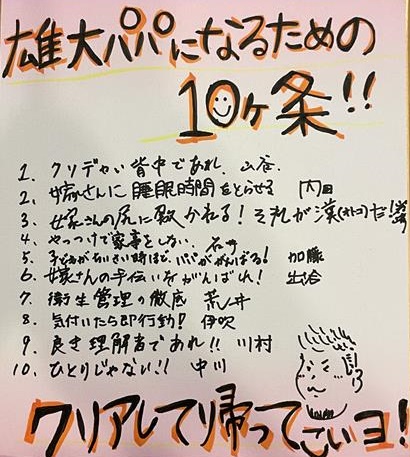 雄大パパになるための
10ヶ条!!
1. クソデカい背中であれ. 山谷.
2. 嫁さんに睡眠時間をとらせる 内田
3. 嫁さんの尻に敷かれる!それが漢(オトコ)だ!
4. やっつけで家事をしない.
5. 子供が小さい時ほど、パパががんばる! 加藤
6. 嫁さんの手伝いをがんばれ! 出谷
7. 衛生管理の徹底 荒井
8. 気付いたら即行動! 伊吹
9. 良き理解者であれ!! 川村
10. ひとりじゃない!! 中川
クリアしてり帰ってこいヨ!